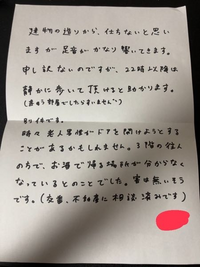 建物の造りから、仕ちないと思い
ますが足音がかなり響いてきます。
申し訳ないのですが、22時以降は
静かに歩いて頂けると助かります。
(違う部屋でしたらすいません)
別件です。
時々老人男性がドアを開けようとする
ことがあるかもしれません。3階の住人
のうちで、お酒で帰る場所が分からなく
なっているとのことでした。害は無いそう
です。(交番、不動産に相談済みです)